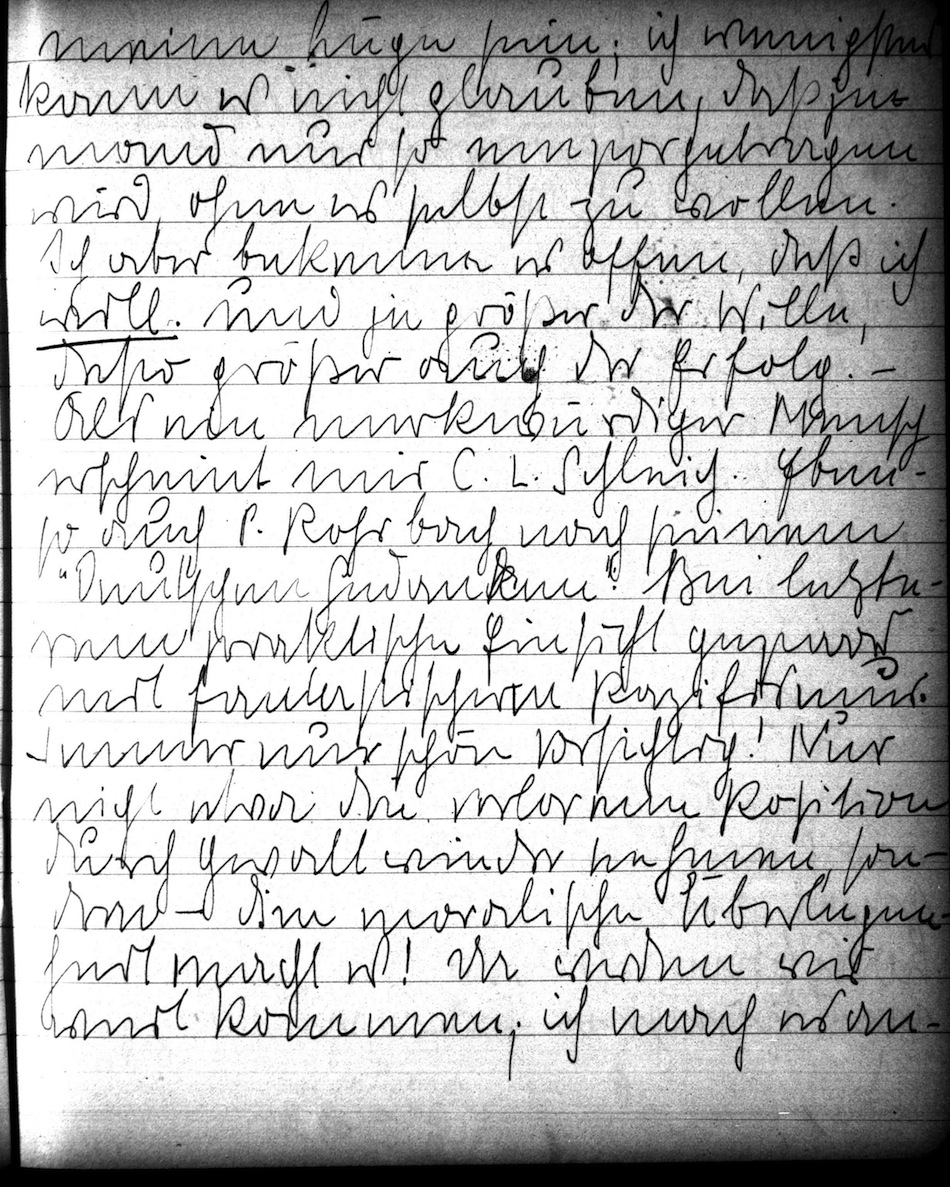 meine Lüge sein; ich wenigstens
kann es nicht glauben, daß je-
mand nur so emporgetragen
wird, ohne es selbst zu wollen.
Ich aber bekenne es offen, daß ich
will. Und je größer der Wille,
desto größer auch der Erfolg. –
Als ein merkwürdiger Mensch
erscheint mir C. L. Schleich. Eben-
so auch P. Rohrbach nach seinem
"Deutschen Gedanken". Bei letzte-
rem praktische Einsicht gepaart
mit fantastischem Pazifismus.
Immer nur schön vorsichtig! Nur
nicht etwa die verlorene Position
durch Gewalt wieder nehmen, son-
dern – die moralische Überlegen-
heit macht es! Da werden wir
weit kommen; ich mach es an-